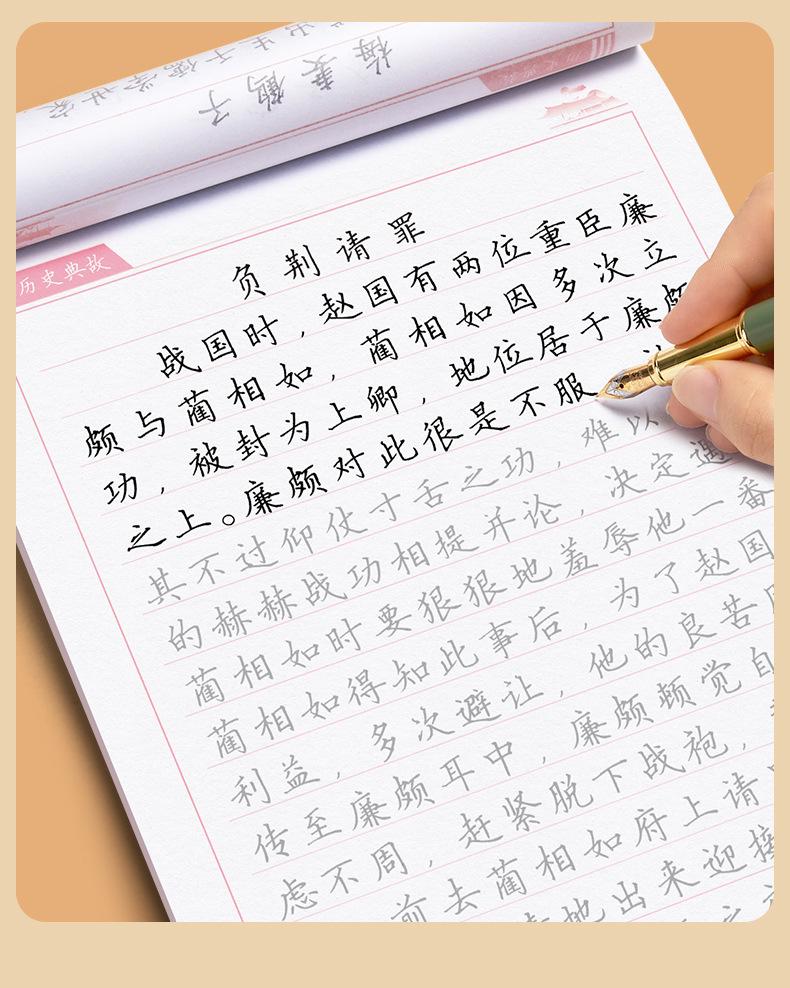 梅妻鹤子
出生于儒学世家
历史典故
负荆请罪
战国时,赵国有两位重臣廉
颇与蔺相如,蔺相如因多次立
功,被封为上卿,地位居于廉颇
之上。廉颇对此很是不服
其不过仰仗寸舌之功,难以
的赫赫战功相提并论,决定遇
蔺相如时要狠狠地羞辱他一番
蔺相如得知此事后,为了赵国
利益,多次避让,他的良苦用
传至廉颇耳中,廉颇顿觉自
虑不周,赶紧脱下战袍,
前去蔺相如府上请
地出来迎接